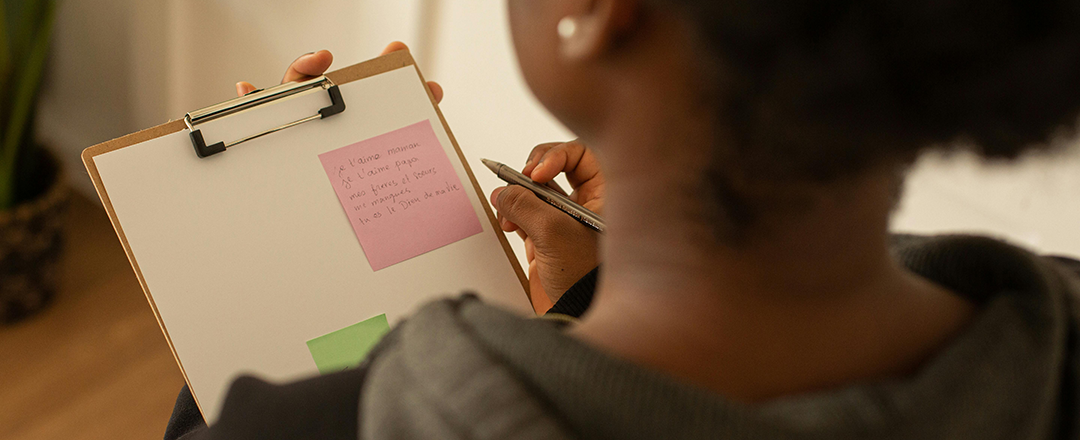 je t'aime maman
je t'aime papa
mes frères et sœurs
me manquez
tu es le Dieu de ma vie